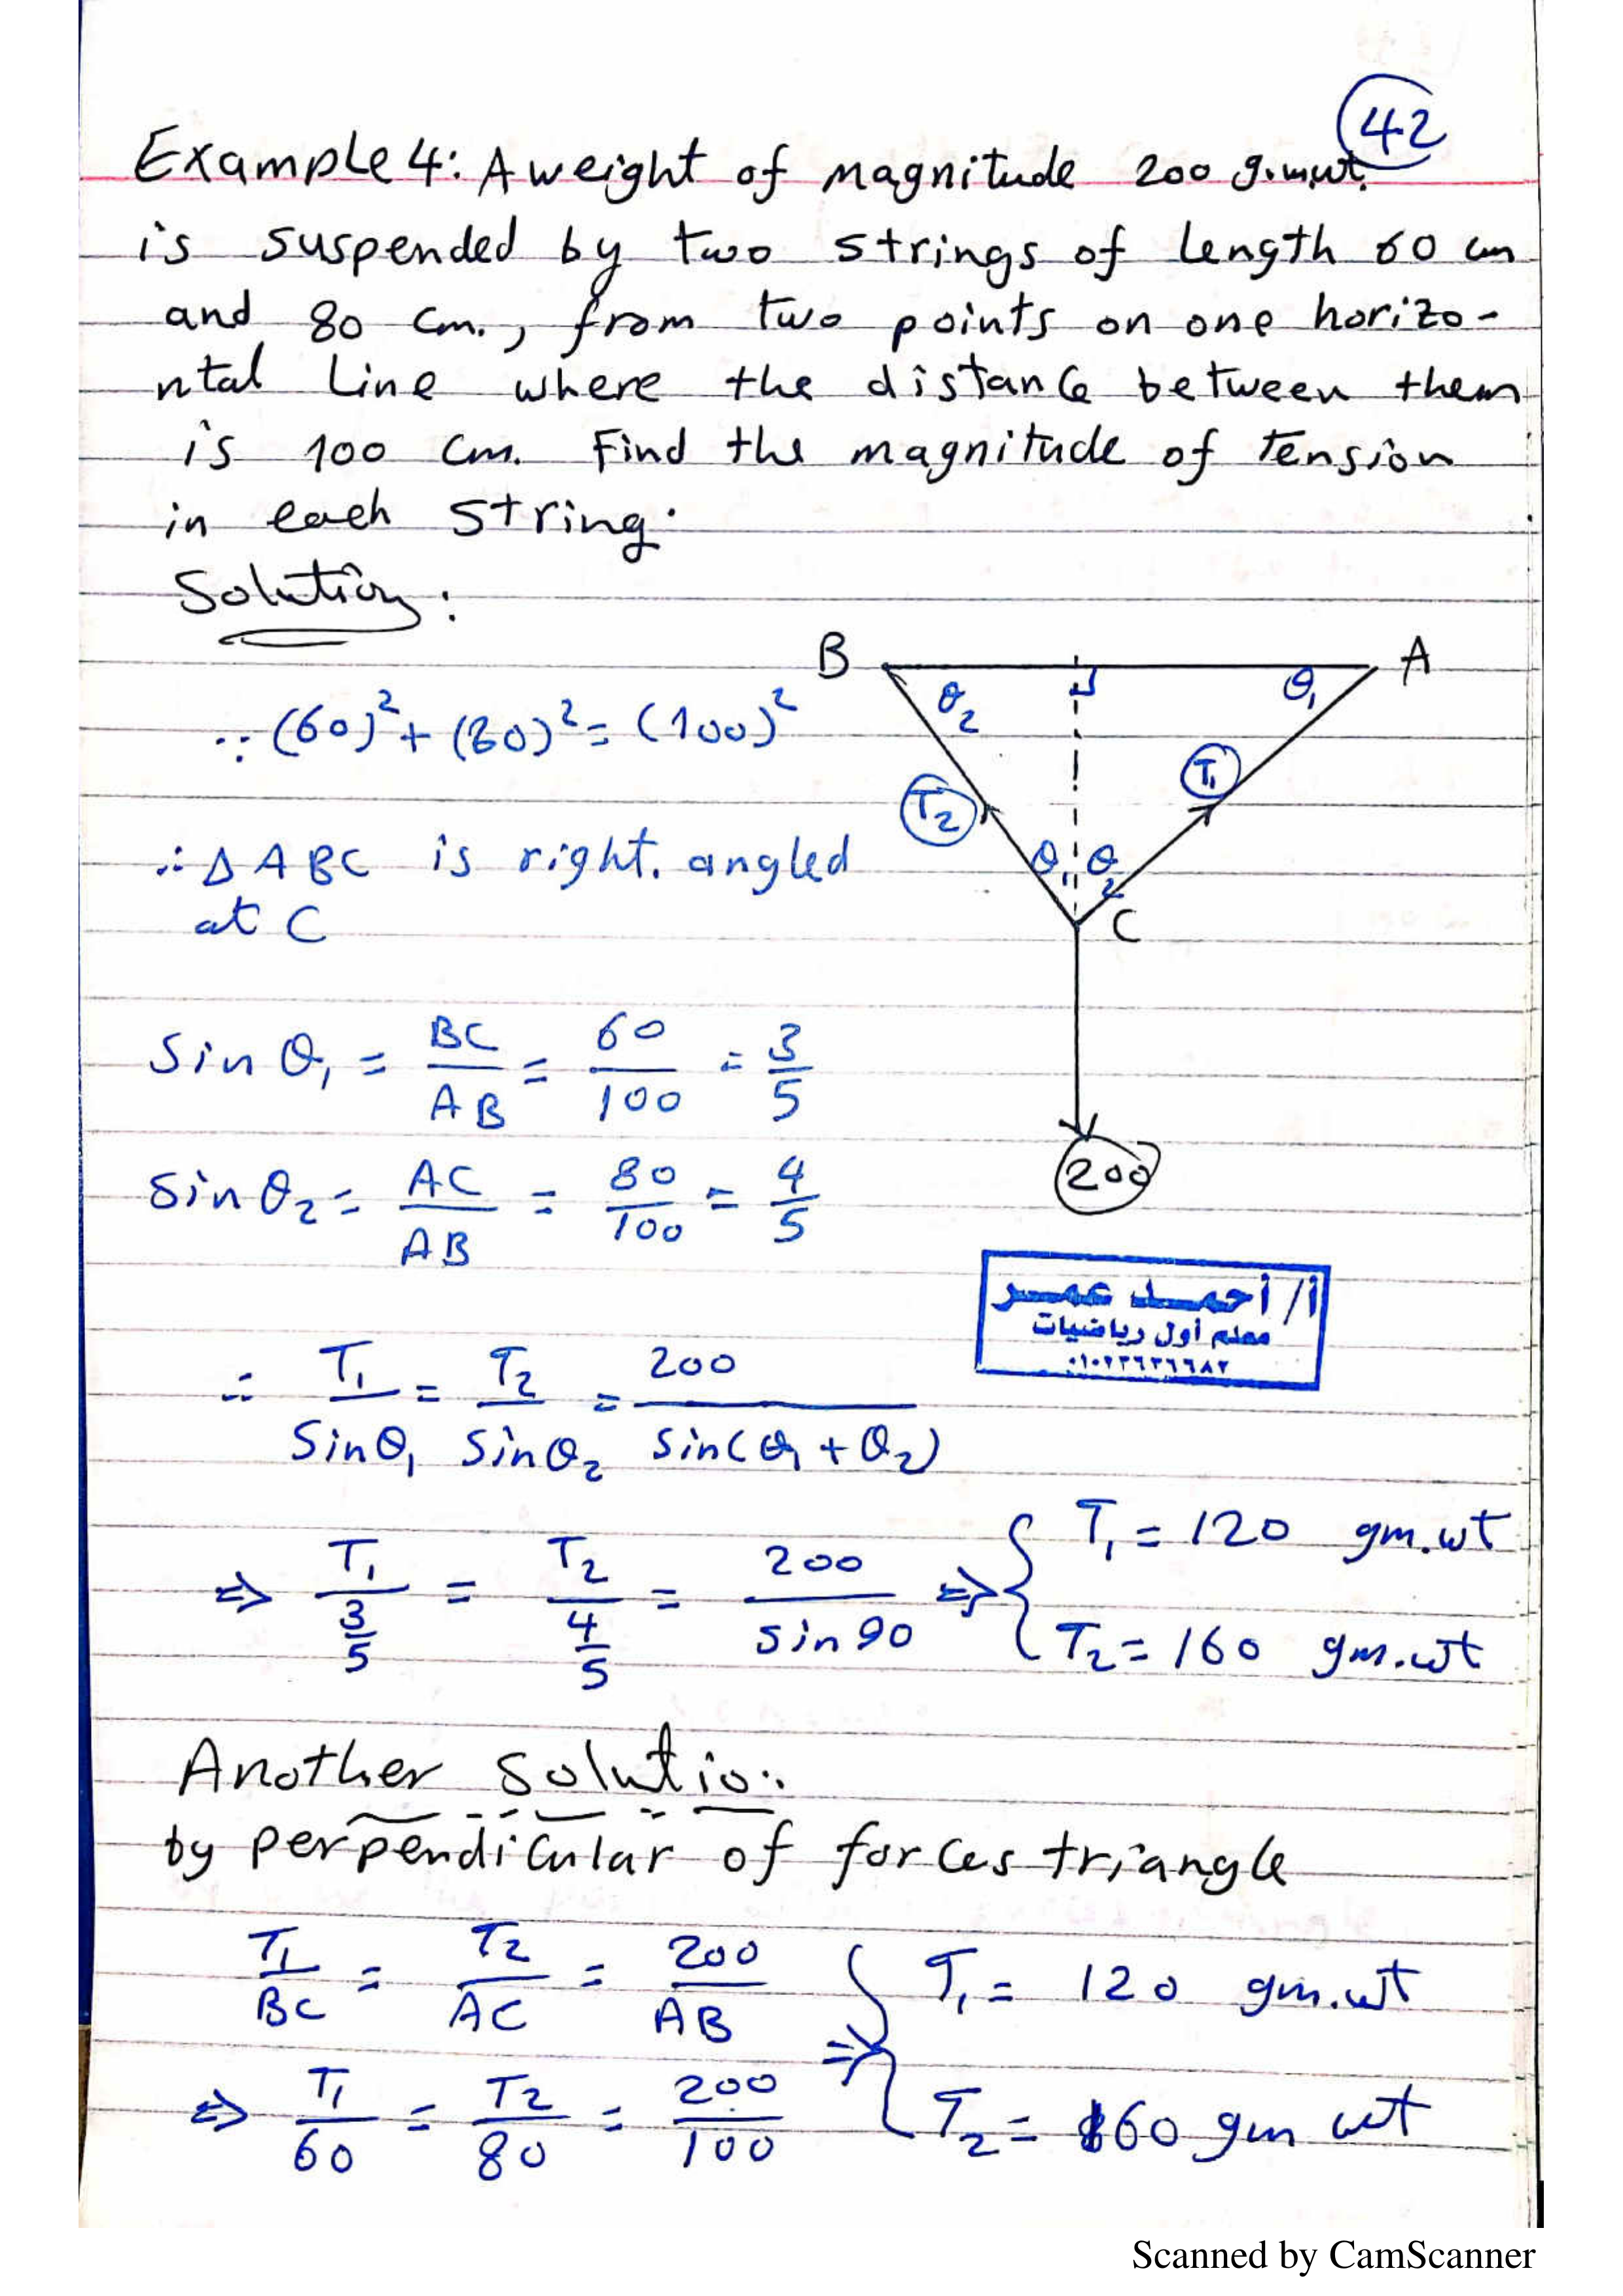 42
Example 4: A weight of magnitude 200 g.m.wt.
is suspended by two strings of length 60 cm
and 80 cm., from two points on one horizo-
ntal Line where the distance between them
is 100 cm. Find the magnitude of tension
in each string.
Solution:
B A
θ₂ θ₁
∵ (60)² + (80)² = (100)²
T₁
T₂
∴ Δ ABC is right. angled
θ₁ θ₂
at C
C
Sin θ₁ = BC/AB = 60/100 = 3/5
200
Sin θ₂ = AC/AB = 80/100 = 4/5
أ/ أحمد عمير
معلم أول رياضيات
∴ T₁/Sinθ₁ = T₂/Sinθ₂ = 200/Sin(θ₁ + θ₂)
⇒ T₁/(3/5) = T₂/(4/5) = 200/sin 90 ⇒ { T₁ = 120 gm.wt
T₂ = 160 gm.wt
Another Solution
by perpendicular of forces triangle
T₁/BC = T₂/AC = 200/AB
⇒ { T₁ = 120 gm.wt
⇒ T₁/60 = T₂/80 = 200/100
T₂ = 160 gm wt
Scanned by CamScanner